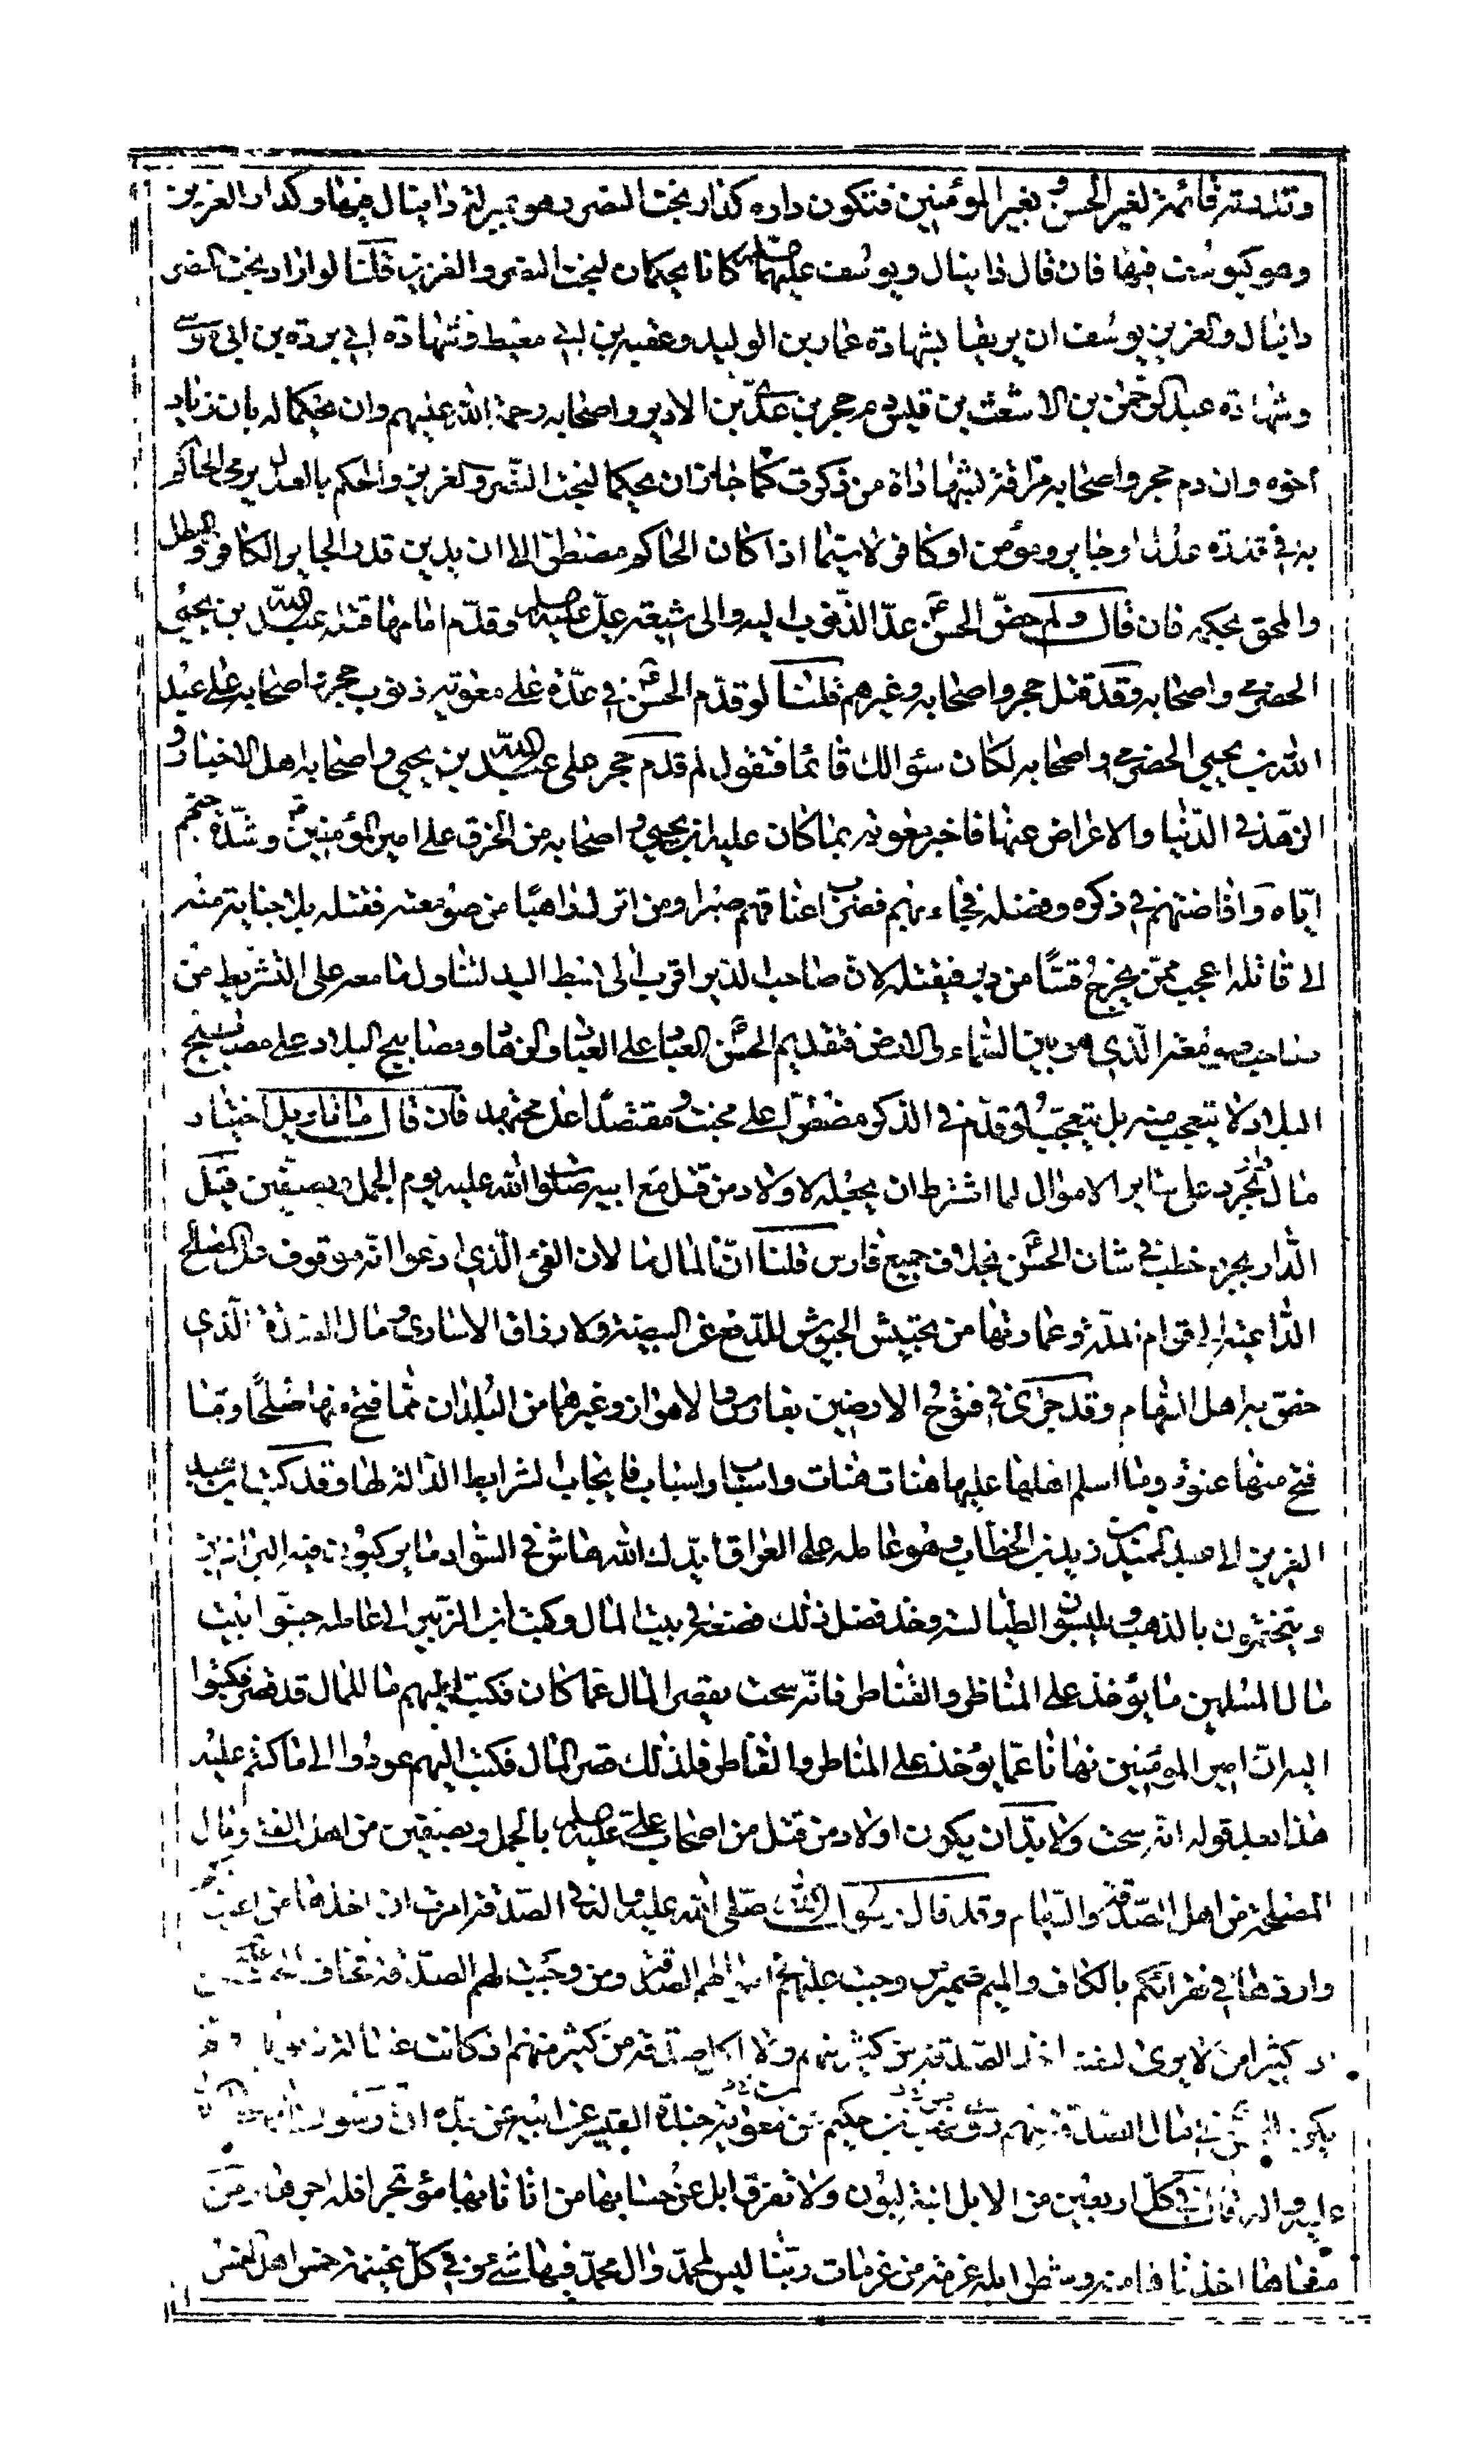 وتدبيره قائمة لغير الحسن و بغير المؤمنين فتكون داره كدار بخت النصر وهو بمنزلة دانيال فيها وكدار العزيز
وهو كيوسف فيها فان قال دانيال ويوسف عليهما كانا يحكمان لبخت النصر والعزيز قلنا لو اراد بخت النصر
دانيال والعزيز يوسف ان يريقا بشهادة عمار بن الوليد وعقبة بن ابى معيط وشهادة ابى بردة بن ابى موسى
وشهادة عبد الرحمن بن الاشعث بن قيس دم حجر بن عدى بن الادبر واصحابه رحمة الله عليهم وان يحكما له بان زياد
اخوه وان دم حجر واصحابه مراقة بشهادة من ذكرت لما جاز ان يحكما لبخت النصر والعزيز والحكم بالعدل يرمى الحاكم
به فى قدرة عدل او جاير ومؤمن او كافر لا سيما اذا كان الحاكم مضطرا الى ان يدين قد الجاير الكافر والمبطل
والمحق بحكمه فان قال ولم خص الحسن عد الذنوب اليه والى شيعة على وقدم امامها قتله عبد الله بن يحيى
الحضرمى واصحابه وقد قتل حجر واصحابه وغيرهم قلنا لو قدم الحسن فى عده على معوية ذنوب حجر واصحابه على عبد
الله بن يحيى الحضرمى واصحابه لكان سؤالك قائما فتقول لم قدم حجر على عبد الله بن يحيى واصحابه اهل الاخيار و
الزهد فى الدنيا والاعراض عنها فاخبر معوية بما كان عليه ابن يحيى و اصحابه من الحرق على امير المؤمنين وشدة حبهم
اياه وافاضتهم فى ذكره وفضله فجاء بهم فضرب اعناقهم صبرا ومن انزل راهبا من صومعته فقتله بلا جناية منه
الى قاتله اعجب ممن يخرج قسا من دير فيقتله لان صاحب الدير اقرب الى بسط اليد لتناول ما معه على التشريط من
صاحب صومعة الذى هو بين السماء والارض فتقديم الحسن العباد على العباد والزهاد ومصابيح البلاد على مصابيح
البلاد لا يتعجب منه بل يتعجب لو قدم فى الذكر مقصرا على مخبت و مقتصدا على مجتهد فان قال ما تاويل اختيار
مال دارابجرد على ساير الاموال لما اشترط ان يجعله لاولاد من قتل مع ابيه صلوات الله عليه يوم الجمل وبصفين قيل
الدارابجرد خطب فى شان الحسن بخلاف جميع فارس قلنا ان المال مالان الفئ الذى ادعوا انه موقوف على المصالح
الداعية الى قوام الملة وعمارتها من تجييش الجيوش للدفع عن البيضة ولارزاق الاسارى ومال الصدقة الذى
خص به اهل السهام وقد جرى فى فتوح الارضين بفارس والاهواز وغيرهما من البلدان مما فتح منها صلحا وما
فتح منها عنوة وما اسلم اهلها عليها هنات وهنات واسباب واسباب بايجاب الشرايط الدالة لها وقد كتب ابن عبد
العزيز الى عبد الحميد بن زيد بن الخطاب وهو عامله على العراق ايدك الله هاش فى السواد ما يركبون فيه البراذين
ويتختمون بالذهب و يلبسون الطيالسة وخذ فضل ذلك فضعه فى بيت المال وكتب ابن الزبير الى عامله جنبوا بيت
مال المسلمين ما يؤخذ على المناظر والقناطر فانه سحت فقصر المال عما كان فكتب اليهم ما للمال قد قصر فكتبوا
اليه ان امير المؤمنين نهانا عما يؤخذ على المناطر والقناطر فلذلك قصر المال فكتب اليهم عودوا الى ما كنتم عليه
هذا بعد قوله انه سحت ولا بد ان يكون اولاد من قتل من اصحاب على بالجمل وبصفين من اهل الفئ ومال
المصلحة من اهل الصدقة والسهام وقد قال رسول الله صلى الله عليه واله فى الصدقة امرت ان اخذها من
واردها فى فقرائكم بالكاف والميم ضمير من وجبت عليهم الصدقة ومن وجبت لهم الصدقة فخاف
كثيرا من لا يرى لنفسه اخذ الصدقة من كثير منهم ولا اكل صدقة من كثير منهم اذ كانت
فى مال الصدقة منهم بن حكيم عن معوية جناة القيسى عن ابيه عن جده ان رسول الله
عليه واله قال فى كل اربعين من الابل ابنة لبون ولا تفرق ابل عن حسابها من اتانا بها مؤتجرا فله اجرها ومن
منعناها اخذناها منه وشطر ابله غرمة من غرمات ربنا ليس لمحمد وال محمد فيها شئ وفى كل غنيمة خمس اهل الخمس